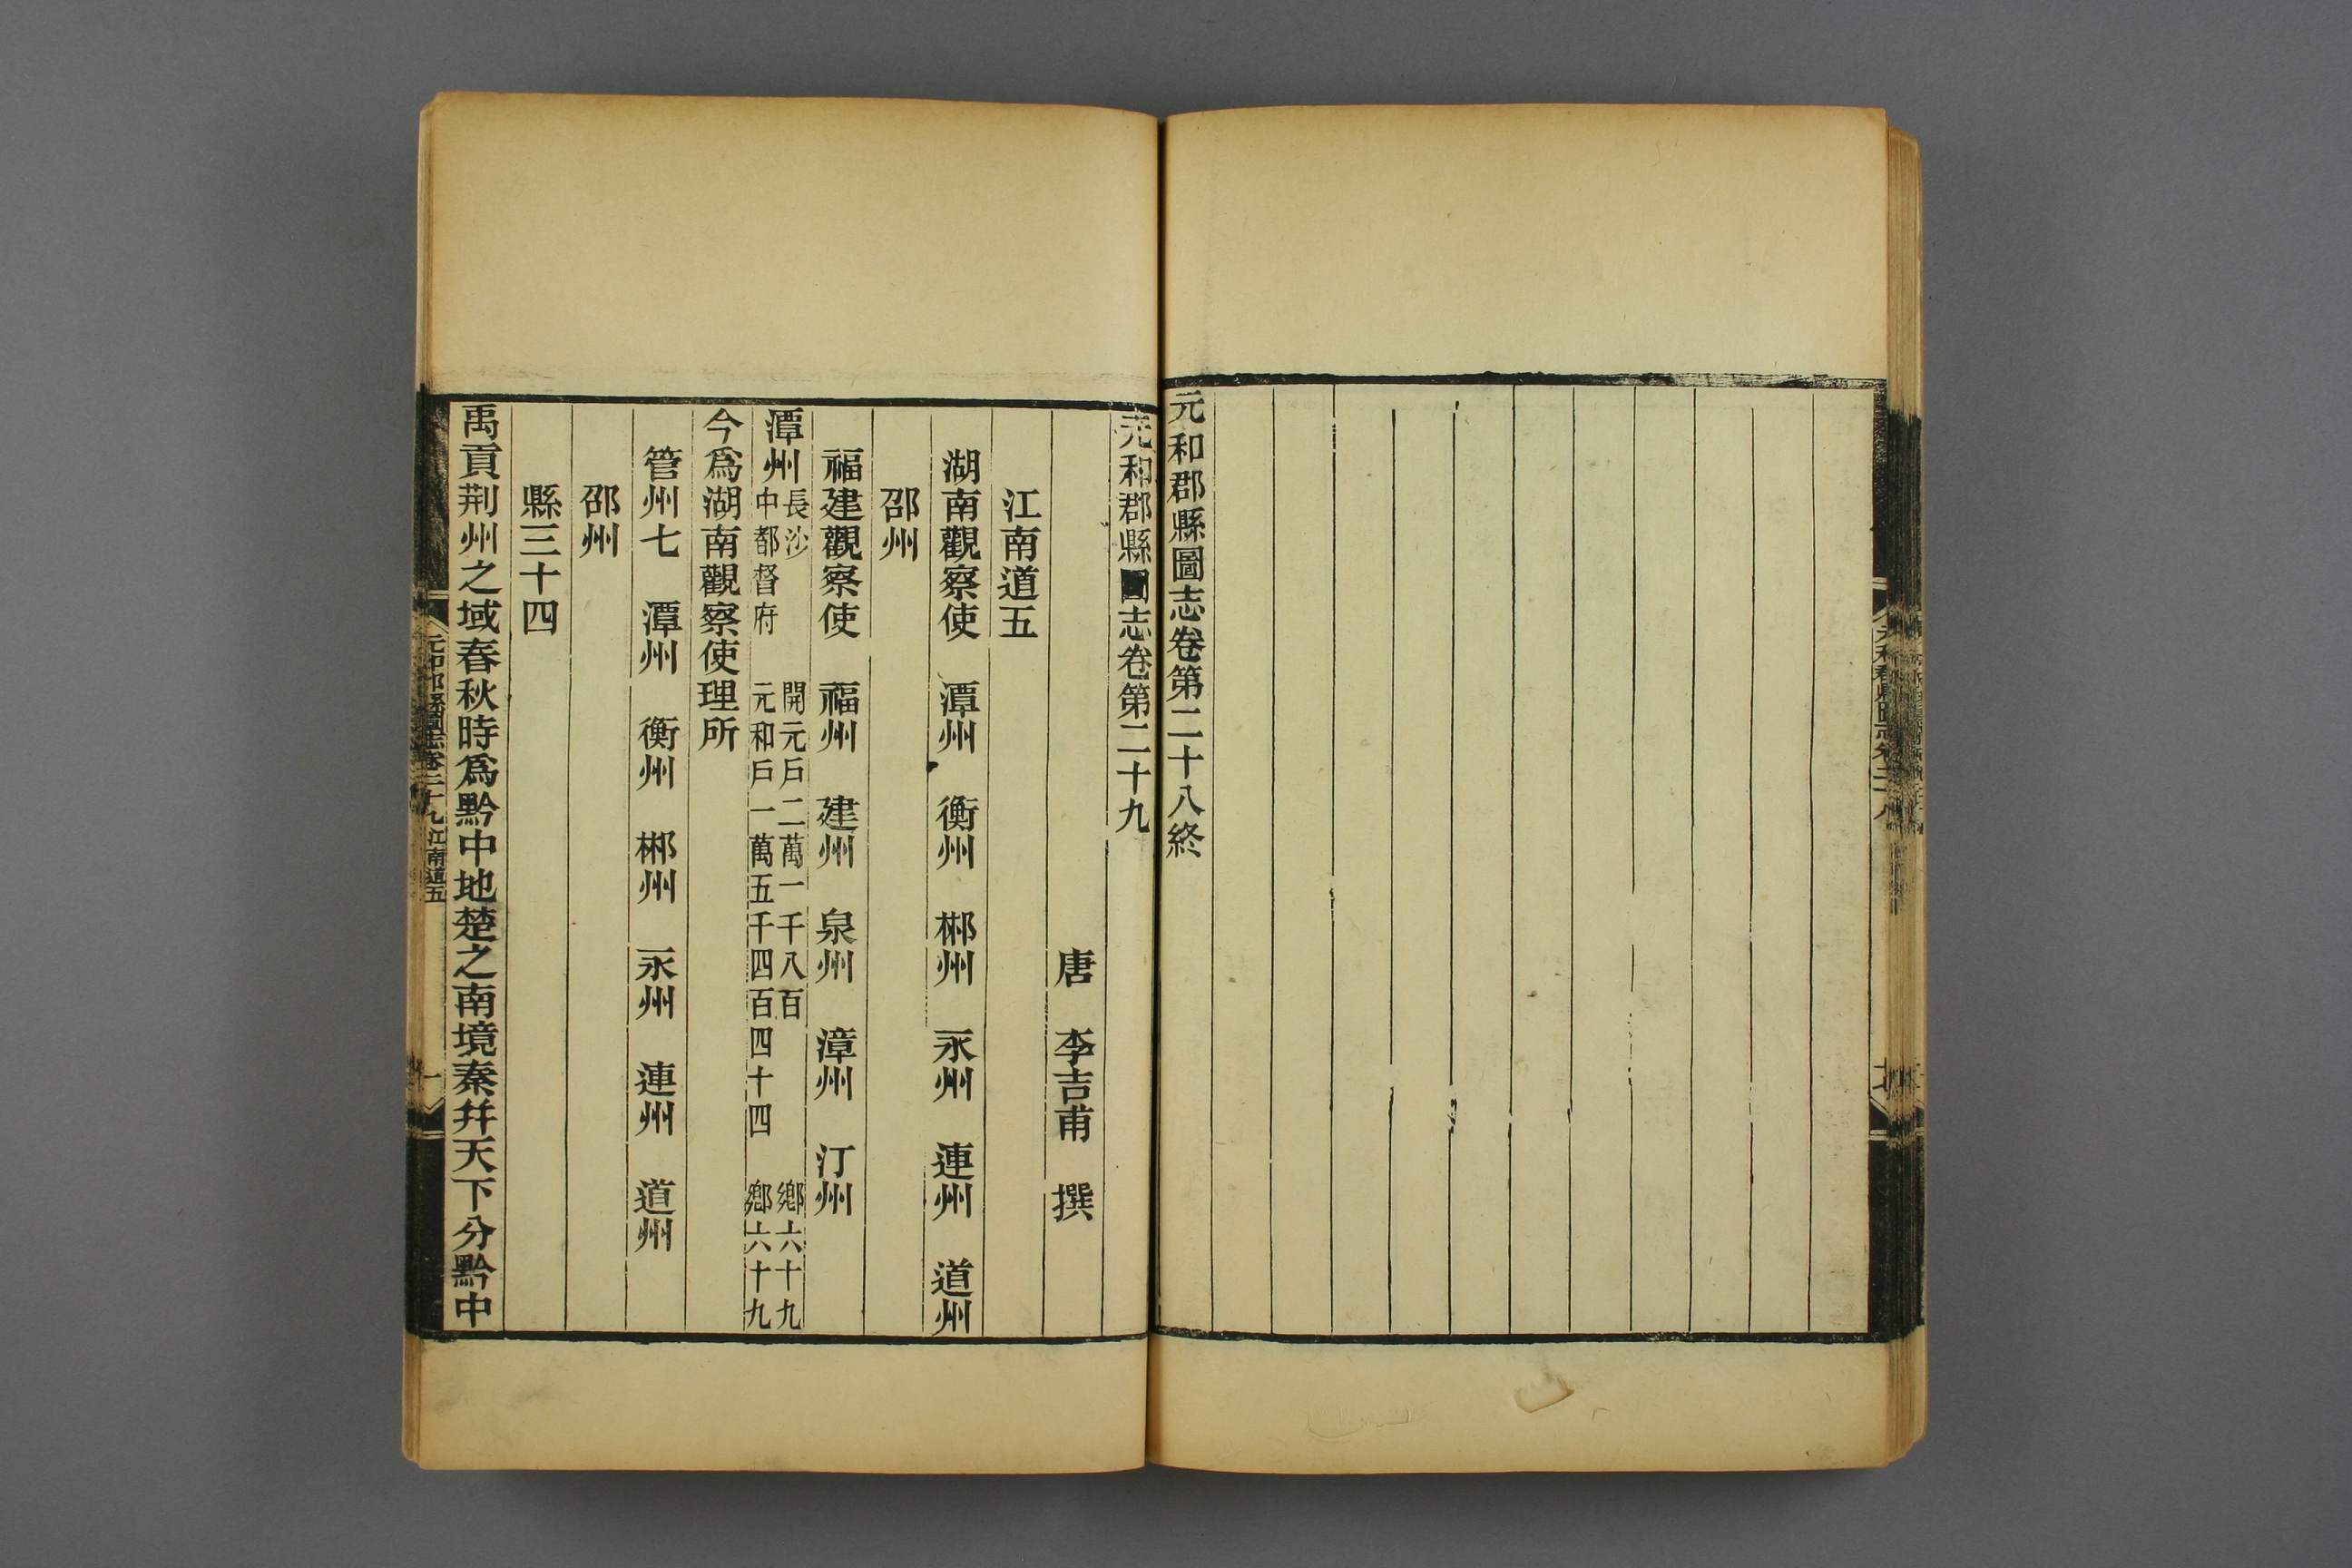 元和郡縣圖志卷第二十八終
元和郡縣圖志卷第二十九
唐　李吉甫　撰
江南道五
湖南觀察使　潭州　衡州　郴州　永州　連州　道州
邵州
福建觀察使　福州　建州　泉州　漳州　汀州
潭州
長沙
中都督府
開元戶二萬一千八百
元和戶一萬五千四百四十四
鄉六十九
鄉六十九
今爲湖南觀察使理所
管州七　潭州　衡州　郴州　永州　連州　道州
邵州
縣三十四
禹貢荆州之域春秋時爲黔中地楚之南境秦幷天下分黔中
元和郡縣圖志卷二十九江南道五
一